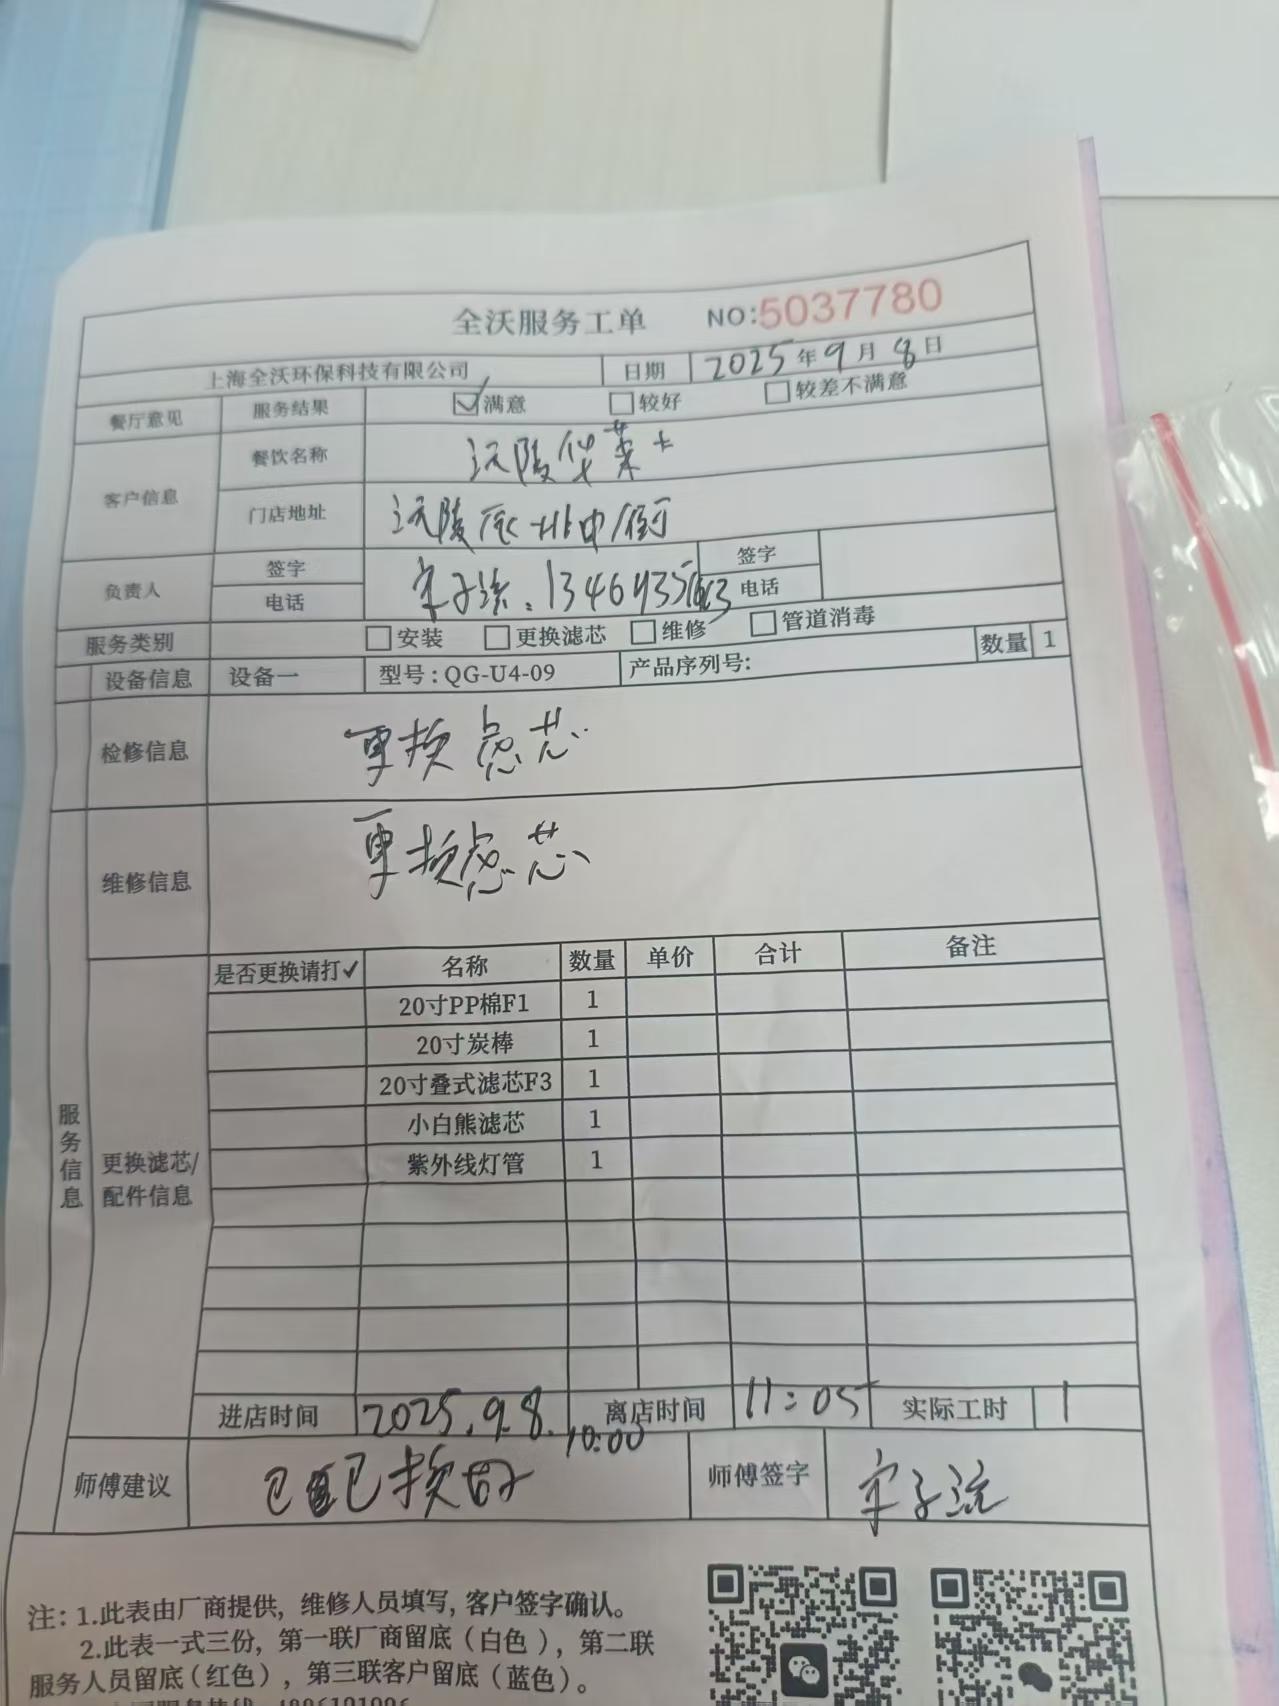 全沃服务工单 NO:5037780
上海全沃环保科技有限公司 日期 2025年9月8日
餐厅意见 服务结果 ☑满意 □较好 □较差不满意
客户信息 餐饮名称 沅陵华莱士
门店地址 沅陵 中街
负责人 签字 电话 宋子流. 签字 电话
服务类别 □安装 □更换滤芯 □维修 □管道消毒
设备信息 设备一 型号:QG-U4-09 产品序列号: 数量 1
检修信息 更换滤芯
维修信息 更换滤芯
服务信息
更换滤芯/配件信息
是否更换请打✓ 名称 数量 单价 合计 备注
20寸PP棉F1 1
20寸炭棒 1
20寸叠式滤芯F3 1
小白熊滤芯 1
紫外线灯管 1
进店时间 2025.9.8. 10:00 离店时间 11:05 实际工时 1
师傅建议 已 已换好 师傅签字 宋子流
注: 1.此表由厂商提供, 维修人员填写, 客户签字确认。
2.此表一式三份, 第一联厂商留底(白色), 第二联
服务人员留底(红色), 第三联客户留底(蓝色)。